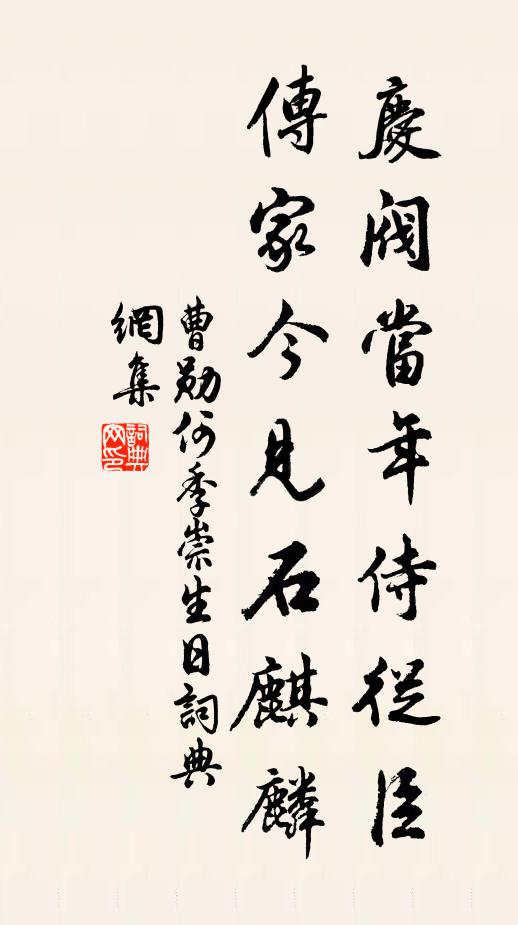 慶閥當年侍從臣
傳家今見石麒麟
曹勛何季崇生日詞典
網集
詞典
网印